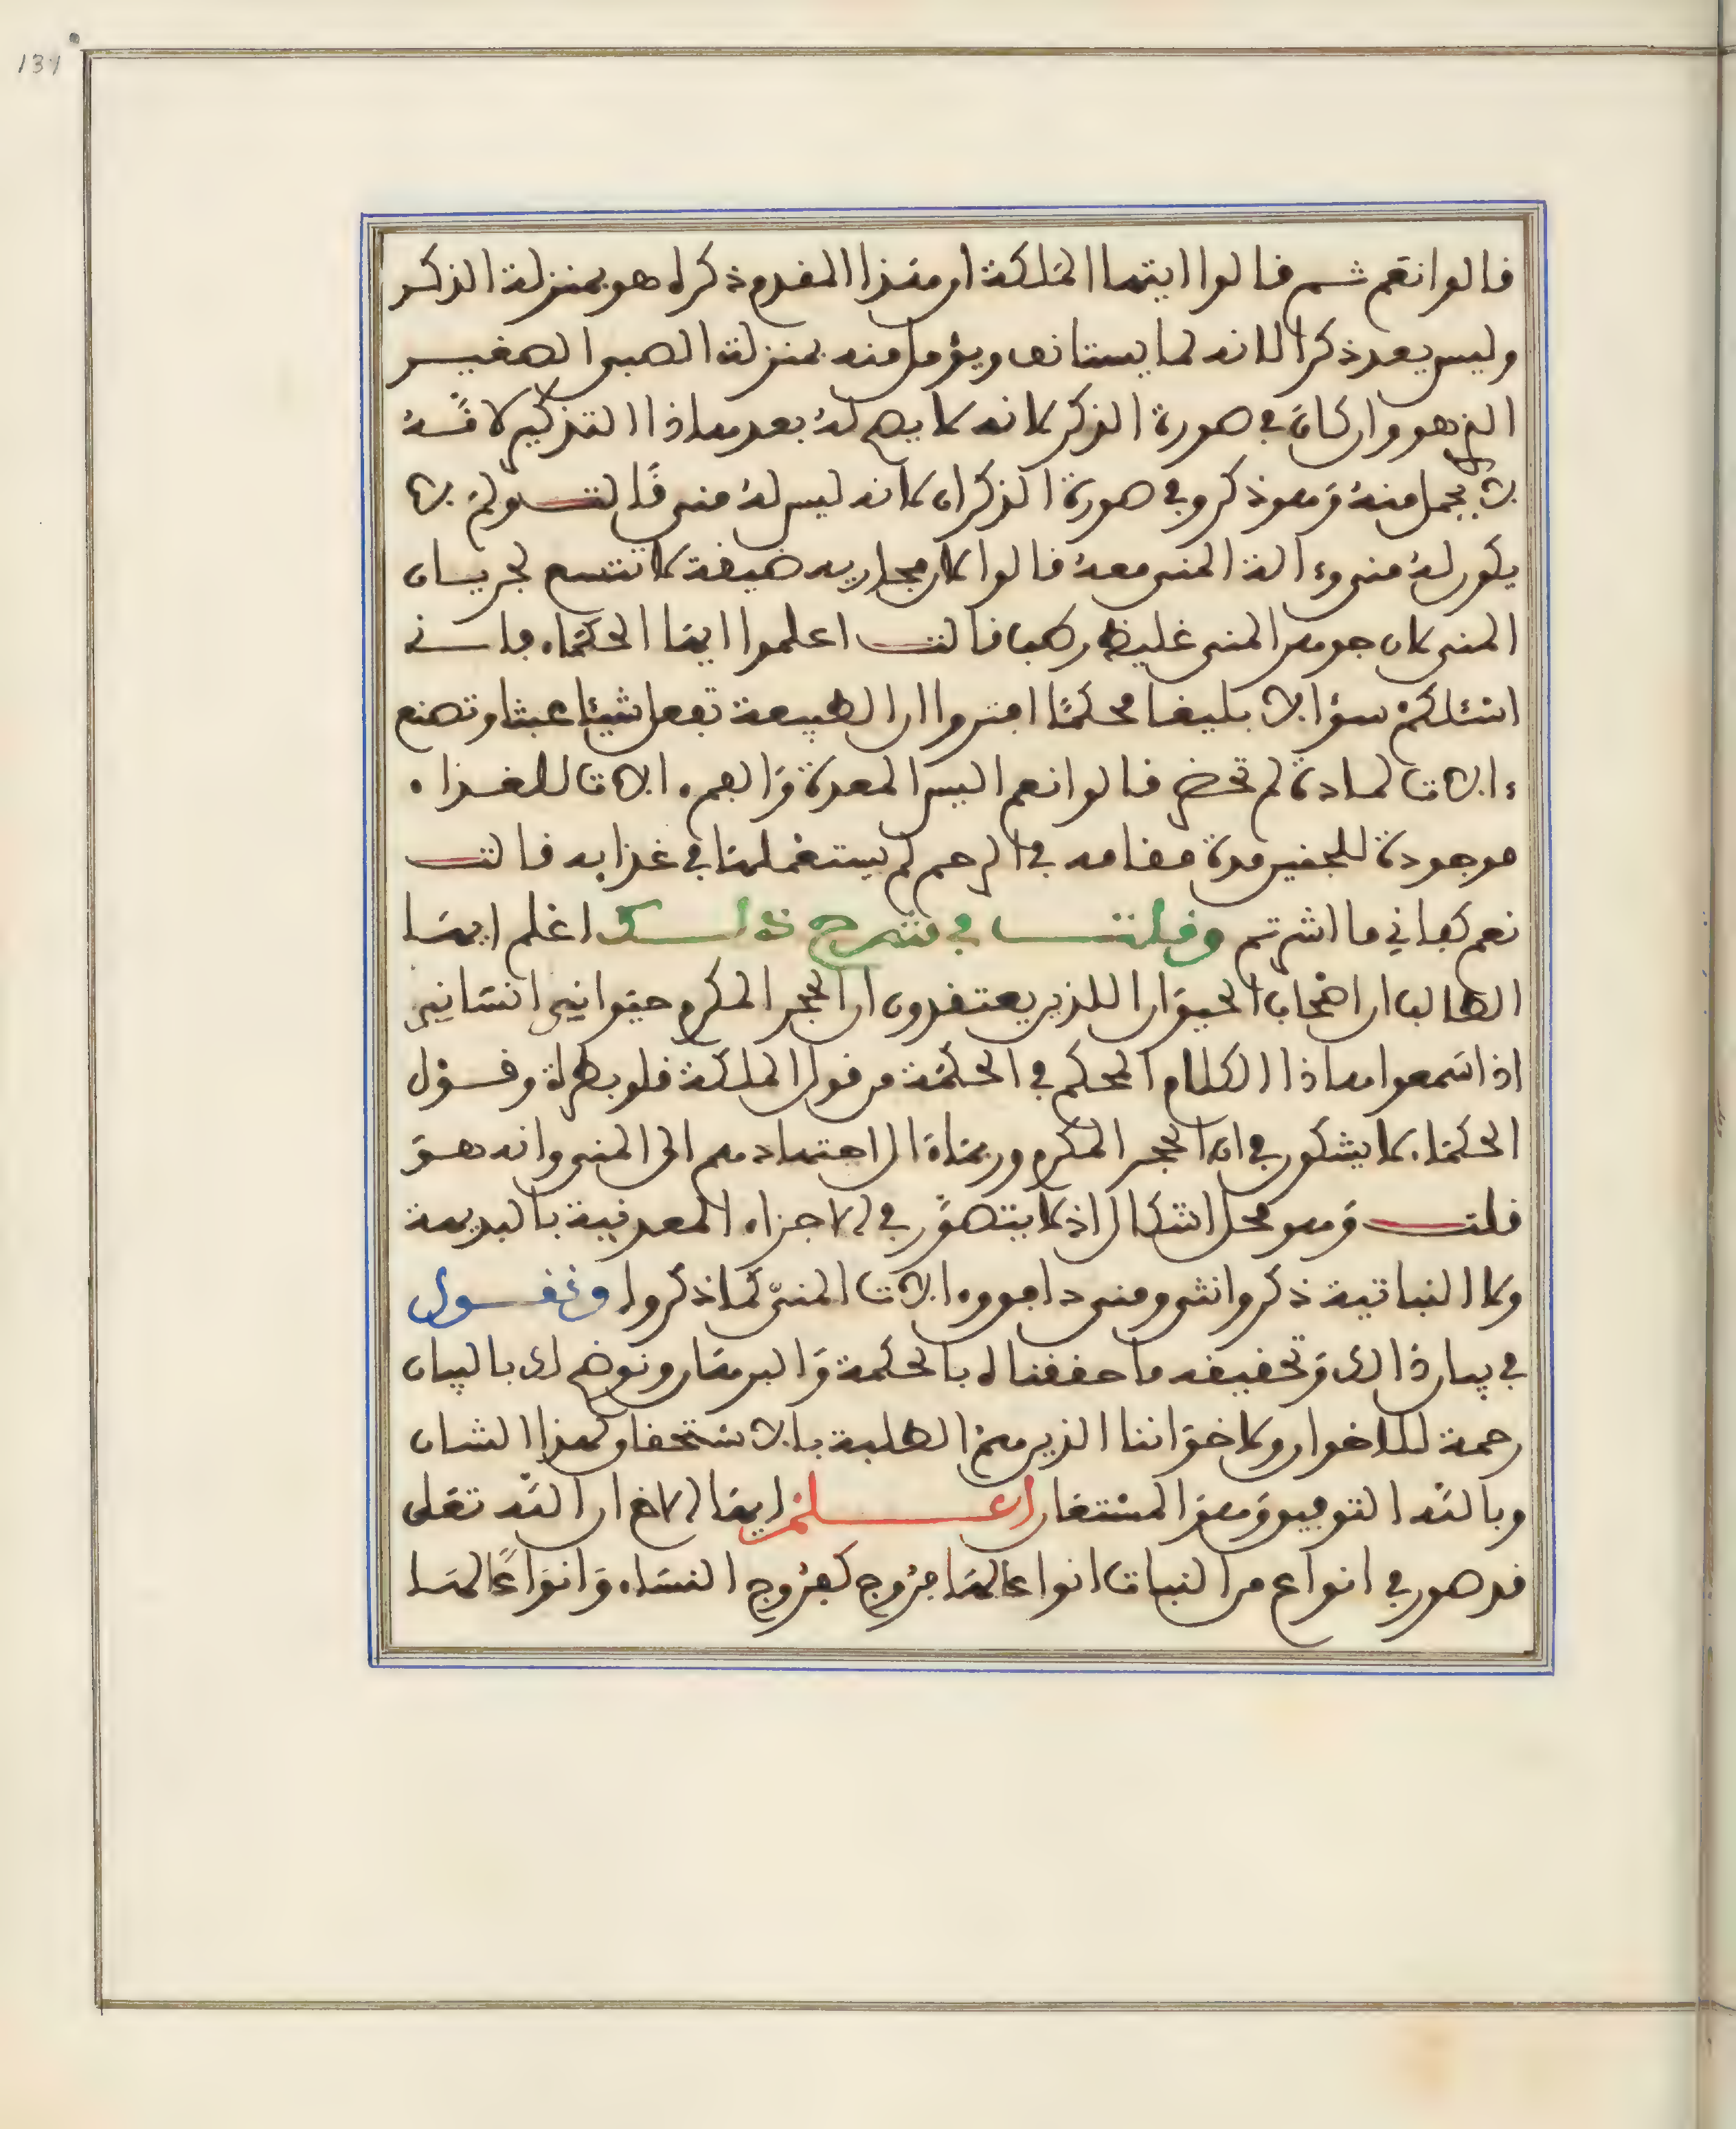 137
قالوا نعم ثم قالوا ايتها الملكة ان هذا المقدم ذكره هو بمنزلة الذكر
وليس يعد ذكرا لانه لما يستانف ويؤمل منه بمنزلة الصبي الصغير
الذي هو وان كان في صورة الذكر لانه لا يصح له بعد هاذا التذكير لانه
لا يحمل منه وهو ذكر وفي صورة الذكران لانه ليس له مني قالت ولم لا
يكون له مني وءالة المني معه قالوا لان مجاريه ضيقة لا تتسع لجريان
المني لان جوهر المني غليظ رطب قالت اعلموا ايها الحكماء فاني
اسئلكم سؤالا بليغا محكما افتروا ان الطبيعة تفعل شيئا عبثا وتصنع
ءالات لمادة لم تحضر قالوا نعم اليس المعدة والفم ءالات للغذاء
موجودة للجنين مدة مقامه في الرحم لم يستعملها في غذايه قالت
نعم كفاني ما اشرتم وقلت في شرح ذلك اعلم ايها
الطالب ان اصحاب الحيوان اللذين يعتقدون ان الحجر المكرم حيواني انساني
اذا سمعوا هاذا الكلام المحكم في الحكمة من قول الملكة قلوبطرة وقول
الحكماء لا يشكون في ان الحجر المكرم وربما مال اجتهادهم الى المني وانه هو
قلت وهو محل اشكال اذ لا يتصور في الاجزاء المعدنية بالبديهة
ولا النباتية ذكر وانثى ومني دافق وءالات المني كما ذكروا ونقول
في بيان ذالك وتحقيقه ما حققناه بالحكمة والبرهان ونوضح لك بالبيان
رحمة للاخوان ولاخواننا الذين هم الطلبة بالاستحقاق لهذا الشان
وبالله التوفيق وهو المستعان اعلم ايها الاخ ان الله تعلى
قد صور في انواع من النبات انواعا لها فروج كفروج النساء وانواعا لها